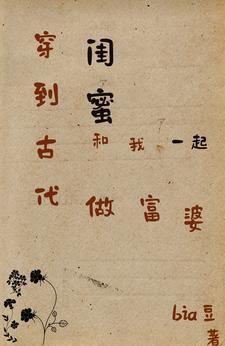 穿到古代
闺蜜
和我一起
做富婆
bia豆著